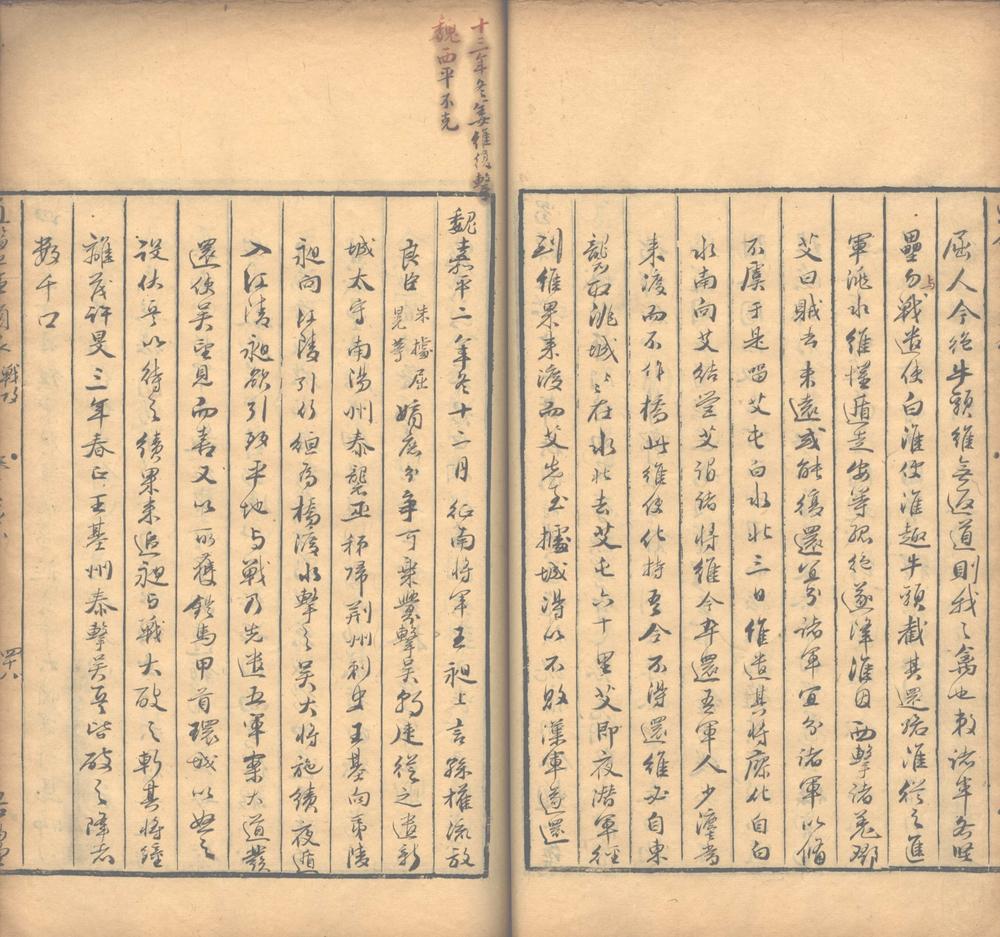 屈人今绝牛頭維無返道則我之禽也敕諸軍各堅
壘勿与戰遣使白淮使淮趣牛頭截其還路淮從之進
軍洮水維懼遁走安等孤絕遂降淮因西擊諸羌鄧
艾曰賊去未遠或能復還宜分諸軍宜分諸軍以備
不虞于是留艾屯白水北三日維遣其將廖化自白
水南向艾結營艾謂諸將維今卒還吾軍人少濅當
来渡而不作橋此維使化持吾令不得還維必自東
襲取洮城〻在水北去艾屯六十里艾即夜潜軍徑
到維果来渡而艾先至據城得以不敗漢軍遂還
十三年冬姜維復擊
魏西平不克
魏嘉平二年冬十二月征南將軍王昶上言孫權流放
良臣朱據屈晃等嫡庶分爭可乘釁擊吳朝廷從之遣新
城太守南陽州泰襲巫秭歸荆州刺史王基向夷陵
昶向江陵引竹絙為橋渡水擊之吳大將施績夜遁
入江陵昶欲引致平地与戰乃先遣五軍案大道發
還使吳望見而喜又以所獲鎧馬甲首環城以怒之
設伏兵以待之績果来追昶与戰大破之斬其將鍾
離茂許旻三年春正王基州泰擊吳兵皆破之降者
数千口